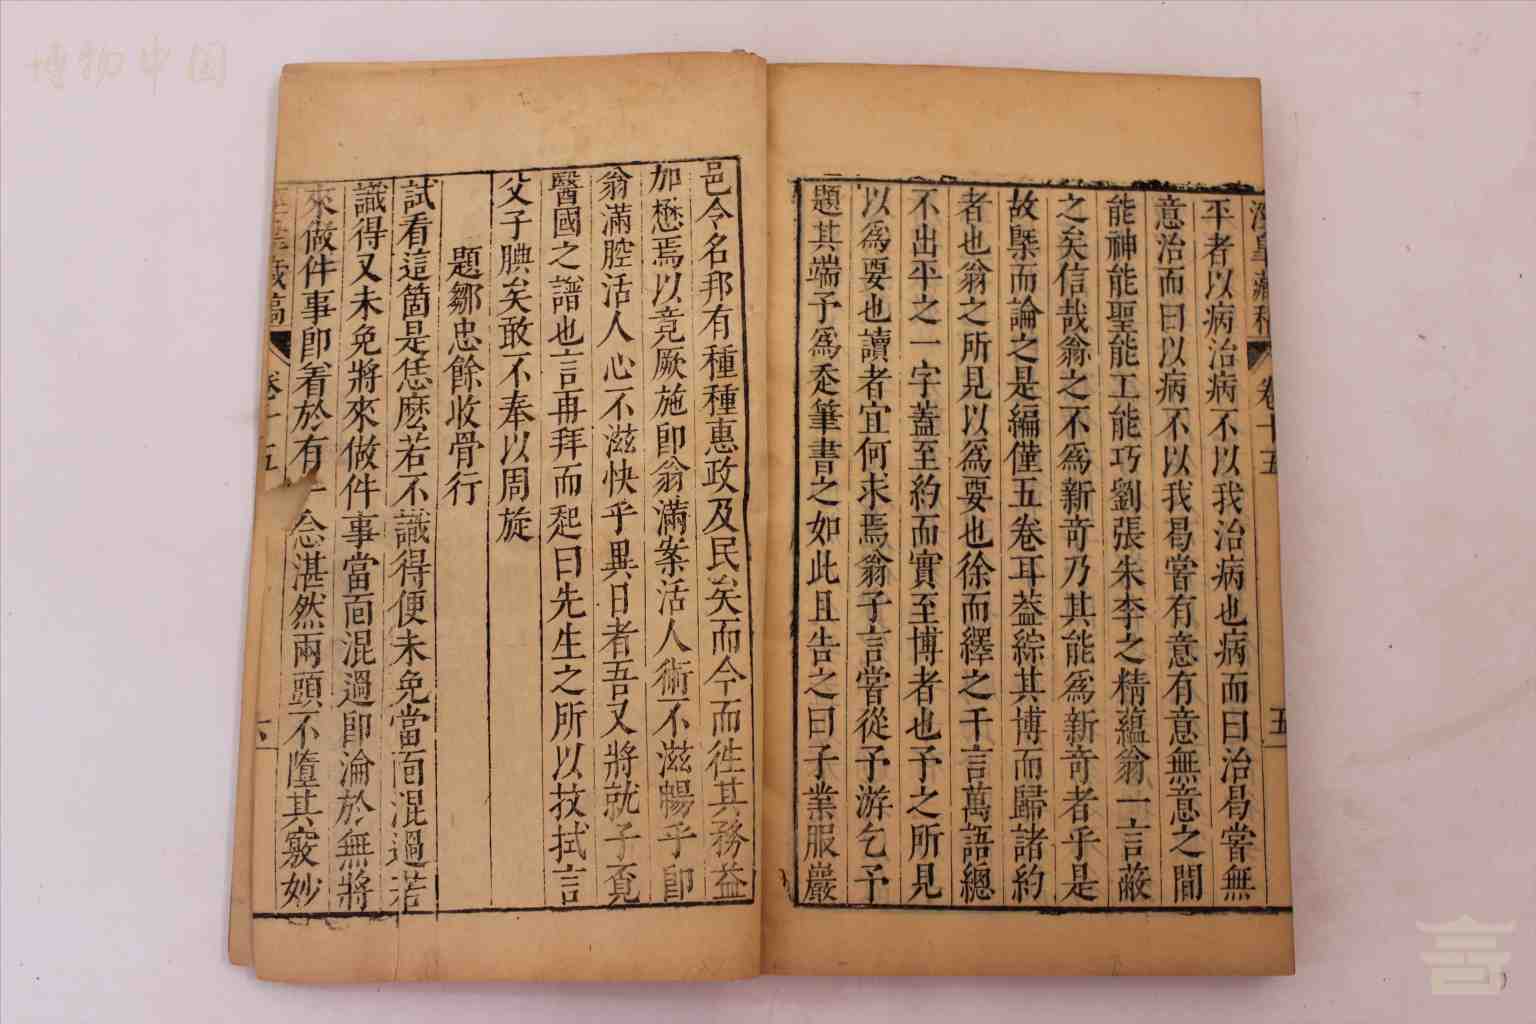 博物中国
卷十五
五
平者以病治病不以我治病也病而曰治曷嘗無
意治而曰以病不以我曷嘗有意有意無意之間
能神能聖能工能巧劉張朱李之精蘊翁一言蔽
之矣信哉翁之不為新奇乃其能為新奇者乎是
故槩而論之是編僅五卷耳葢綜其博而歸諸約
者也翁之所見以為要也徐而繹之千言萬語總
不出平之一字蓋至約而實至博者也予之所見
以為要也讀者宜何求焉翁子言嘗從予游乞予
題其端予為泚筆書之如此且告之曰子業服巖
邑令名邦有種種惠政及民矣而今而徃其務益
加懋焉以竟厥施卽翁滿案活人術不滋暢乎卽
翁滿腔活人心不滋快乎異日者吾又將就子覔
醫國之譜也言再拜而起曰先生之所以技拭言
父子腆矣敢不奉以周旋
題鄒忠餘收骨行
試看這箇是恁麽若不識得便未免當面混過若
識得又未免將來做件事當面混過卽淪於無將
來做件事卽着於有一念湛然兩頭不墮其竅妙
卷十五